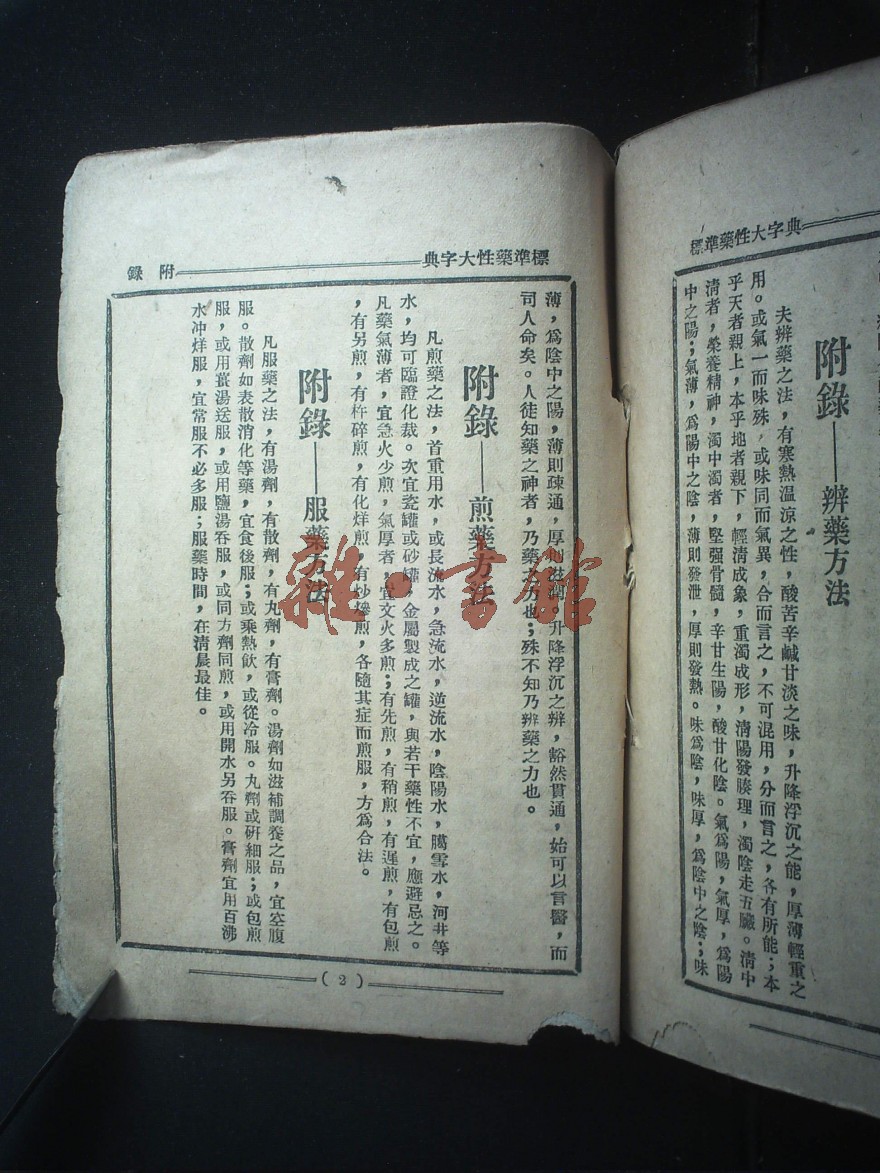 標準藥性大字典
附錄——辨藥方法
夫辨藥之法，有寒熱溫涼之性，酸苦辛鹹甘淡之味，升降浮沉之能，厚薄輕重之
用。或氣一而味殊，或味同而氣異，合而言之，不可混用，分而言之，各有所能；本
乎天者親上，本乎地者親下，輕清成象，重濁成形，清陽發腠理，濁陰走五臟。清中
清者，榮養精神，濁中濁者，堅强骨髓，辛甘生陽，酸甘化陰。氣爲陽，氣厚，爲陽
中之陽；氣薄，爲陽中之陰，薄則發泄，厚則發熱。味爲陰，味厚，爲陰中之陰；味
標準藥性大字典
附錄
薄，爲陰中之陽，薄則疎通，厚則滋潤。升降浮沉之辨，豁然貫通，始可以言醫，而
司人命矣。人徒知藥之神者，乃藥之力也；殊不知乃辨藥之力也。
附錄——煎藥方法
凡煎藥之法，首重用水，或長流水，急流水，逆流水，陰陽水，臈雪水，河井等
水，均可臨證化裁。次宜瓷罐或砂罐，金屬製成之罐，與若干藥性不宜，應避忌之。
凡藥氣薄者，宜急火少煎，氣厚者，宜文火多煎；有先煎，有稍煎，有遲煎，有包煎
，有另煎，有杵碎煎，有化烊煎，有炒摻煎，各隨其症而煎服，方爲合法。
附錄——服藥方法
凡服藥之法，有湯劑，有散劑，有丸劑，有膏劑。湯劑如滋補調養之品，宜空腹
服。散劑如表散消化等藥，宜食後服；或乘熱飲，或從冷服。丸劑或研細服；或包煎
服，或用薑湯送服，或用鹽湯吞服，或同方劑同煎，或用開水另吞服。膏劑宜用百沸
水冲烊服，宜常服不必多服；服藥時間，在清晨最佳。
(2)
雜·書館